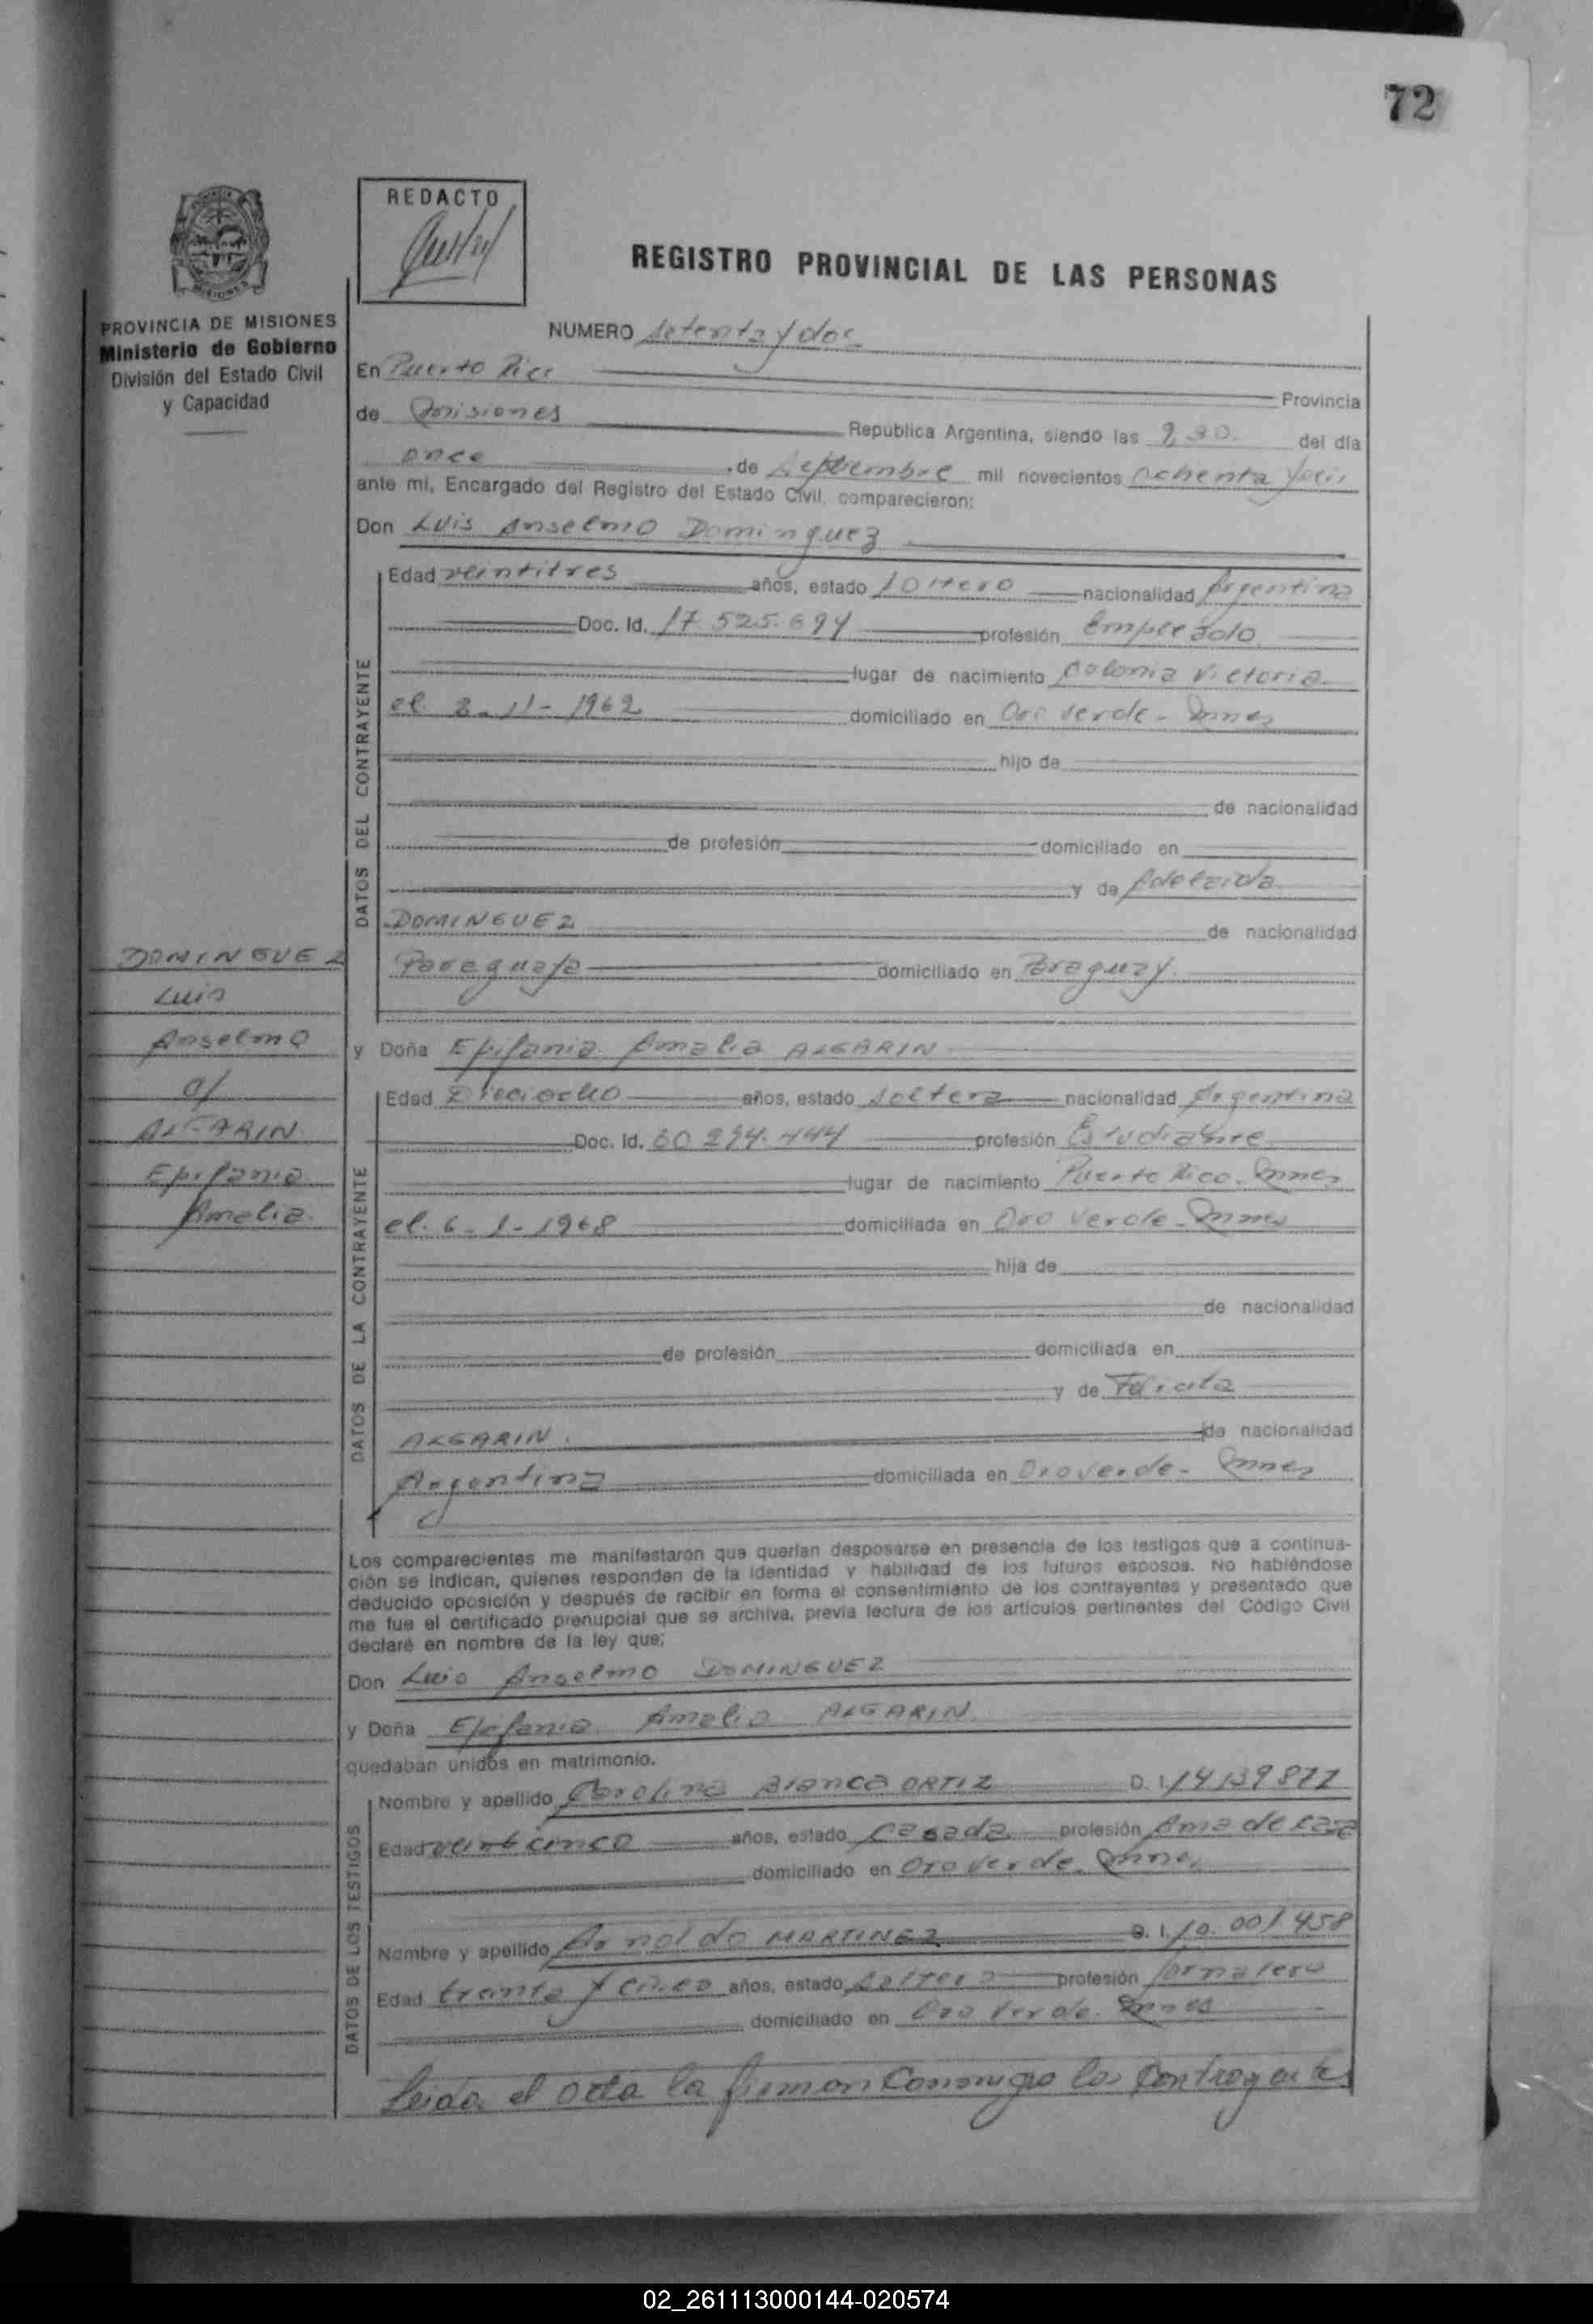 72
REDACTO
REGISTRO PROVINCIAL DE LAS PERSONAS
PROVINCIA DE MISIONES
Ministerio de Gobierno
División del Estado Civil
y Capacidad
NUMERO setenta y dos
En Puerto Rico Provincia
de Misiones República Argentina, siendo las 9,30. del día
once de Septiembre mil novecientos ochenta y seis
ante mí, Encargado del Registro del Estado Civil, comparecieron:
Don Luis Anselmo Dominguez
DATOS DEL CONTRAYENTE
Edad veintitres años, estado soltero nacionalidad Argentina
Doc. Id. 17.525.694 profesión Empleado
lugar de nacimiento Colonia Victoria
el 2-11-1962 domiciliado en Oro Verde - Mnes
hijo de
de nacionalidad
de profesión domiciliado en
y de Adelaida
DOMINGUEZ de nacionalidad
Paraguaya domiciliado en Paraguay
DOMINGUEZ
Luis
Anselmo
c/
ALGARIN
Epifania
Amalia
y Doña Epifania Amalia ALGARIN
DATOS DE LA CONTRAYENTE
Edad Dieciocho años, estado soltera nacionalidad Argentina
Doc. Id. 60.294.444 profesión Estudiante
lugar de nacimiento Puerto Rico. Mnes
el. 6-1-1968 domiciliada en Oro Verde - Mnes
hija de
de nacionalidad
de profesión domiciliada en
y de
ALGARIN. de nacionalidad
Argentina domiciliada en Oro verde - Mnes
Los comparecientes me manifestaron que querían desposarse en presencia de los testigos que a continua-
ción se indican, quienes responden de la identidad y habilidad de los futuros esposos. No habiéndose
deducido oposición y después de recibir en forma el consentimiento de los contrayentes y presentado que
me fue el certificado prenupcial que se archiva, previa lectura de los artículos pertinentes del Código Civil
declaré en nombre de la ley que;
Don Luis Anselmo DOMINGUEZ
y Doña Epifania Amalia ALGARIN
quedaban unidos en matrimonio.
DATOS DE LOS TESTIGOS
Nombre y apellido Carolina Blanca ORTIZ D. I. 14139877
Edad veinticinco años, estado Casada profesión Ama de casa
domiciliado en Oro Verde. Mnes
Nombre y apellido Arnoldo MARTINEZ D. I. 10.001458
Edad treinta y cinco años, estado soltero profesión Jornalero
domiciliado en Oro Verde. Mnes
Leida el acta la firman Conmigo los Contrayentes
02_261113000144-020574